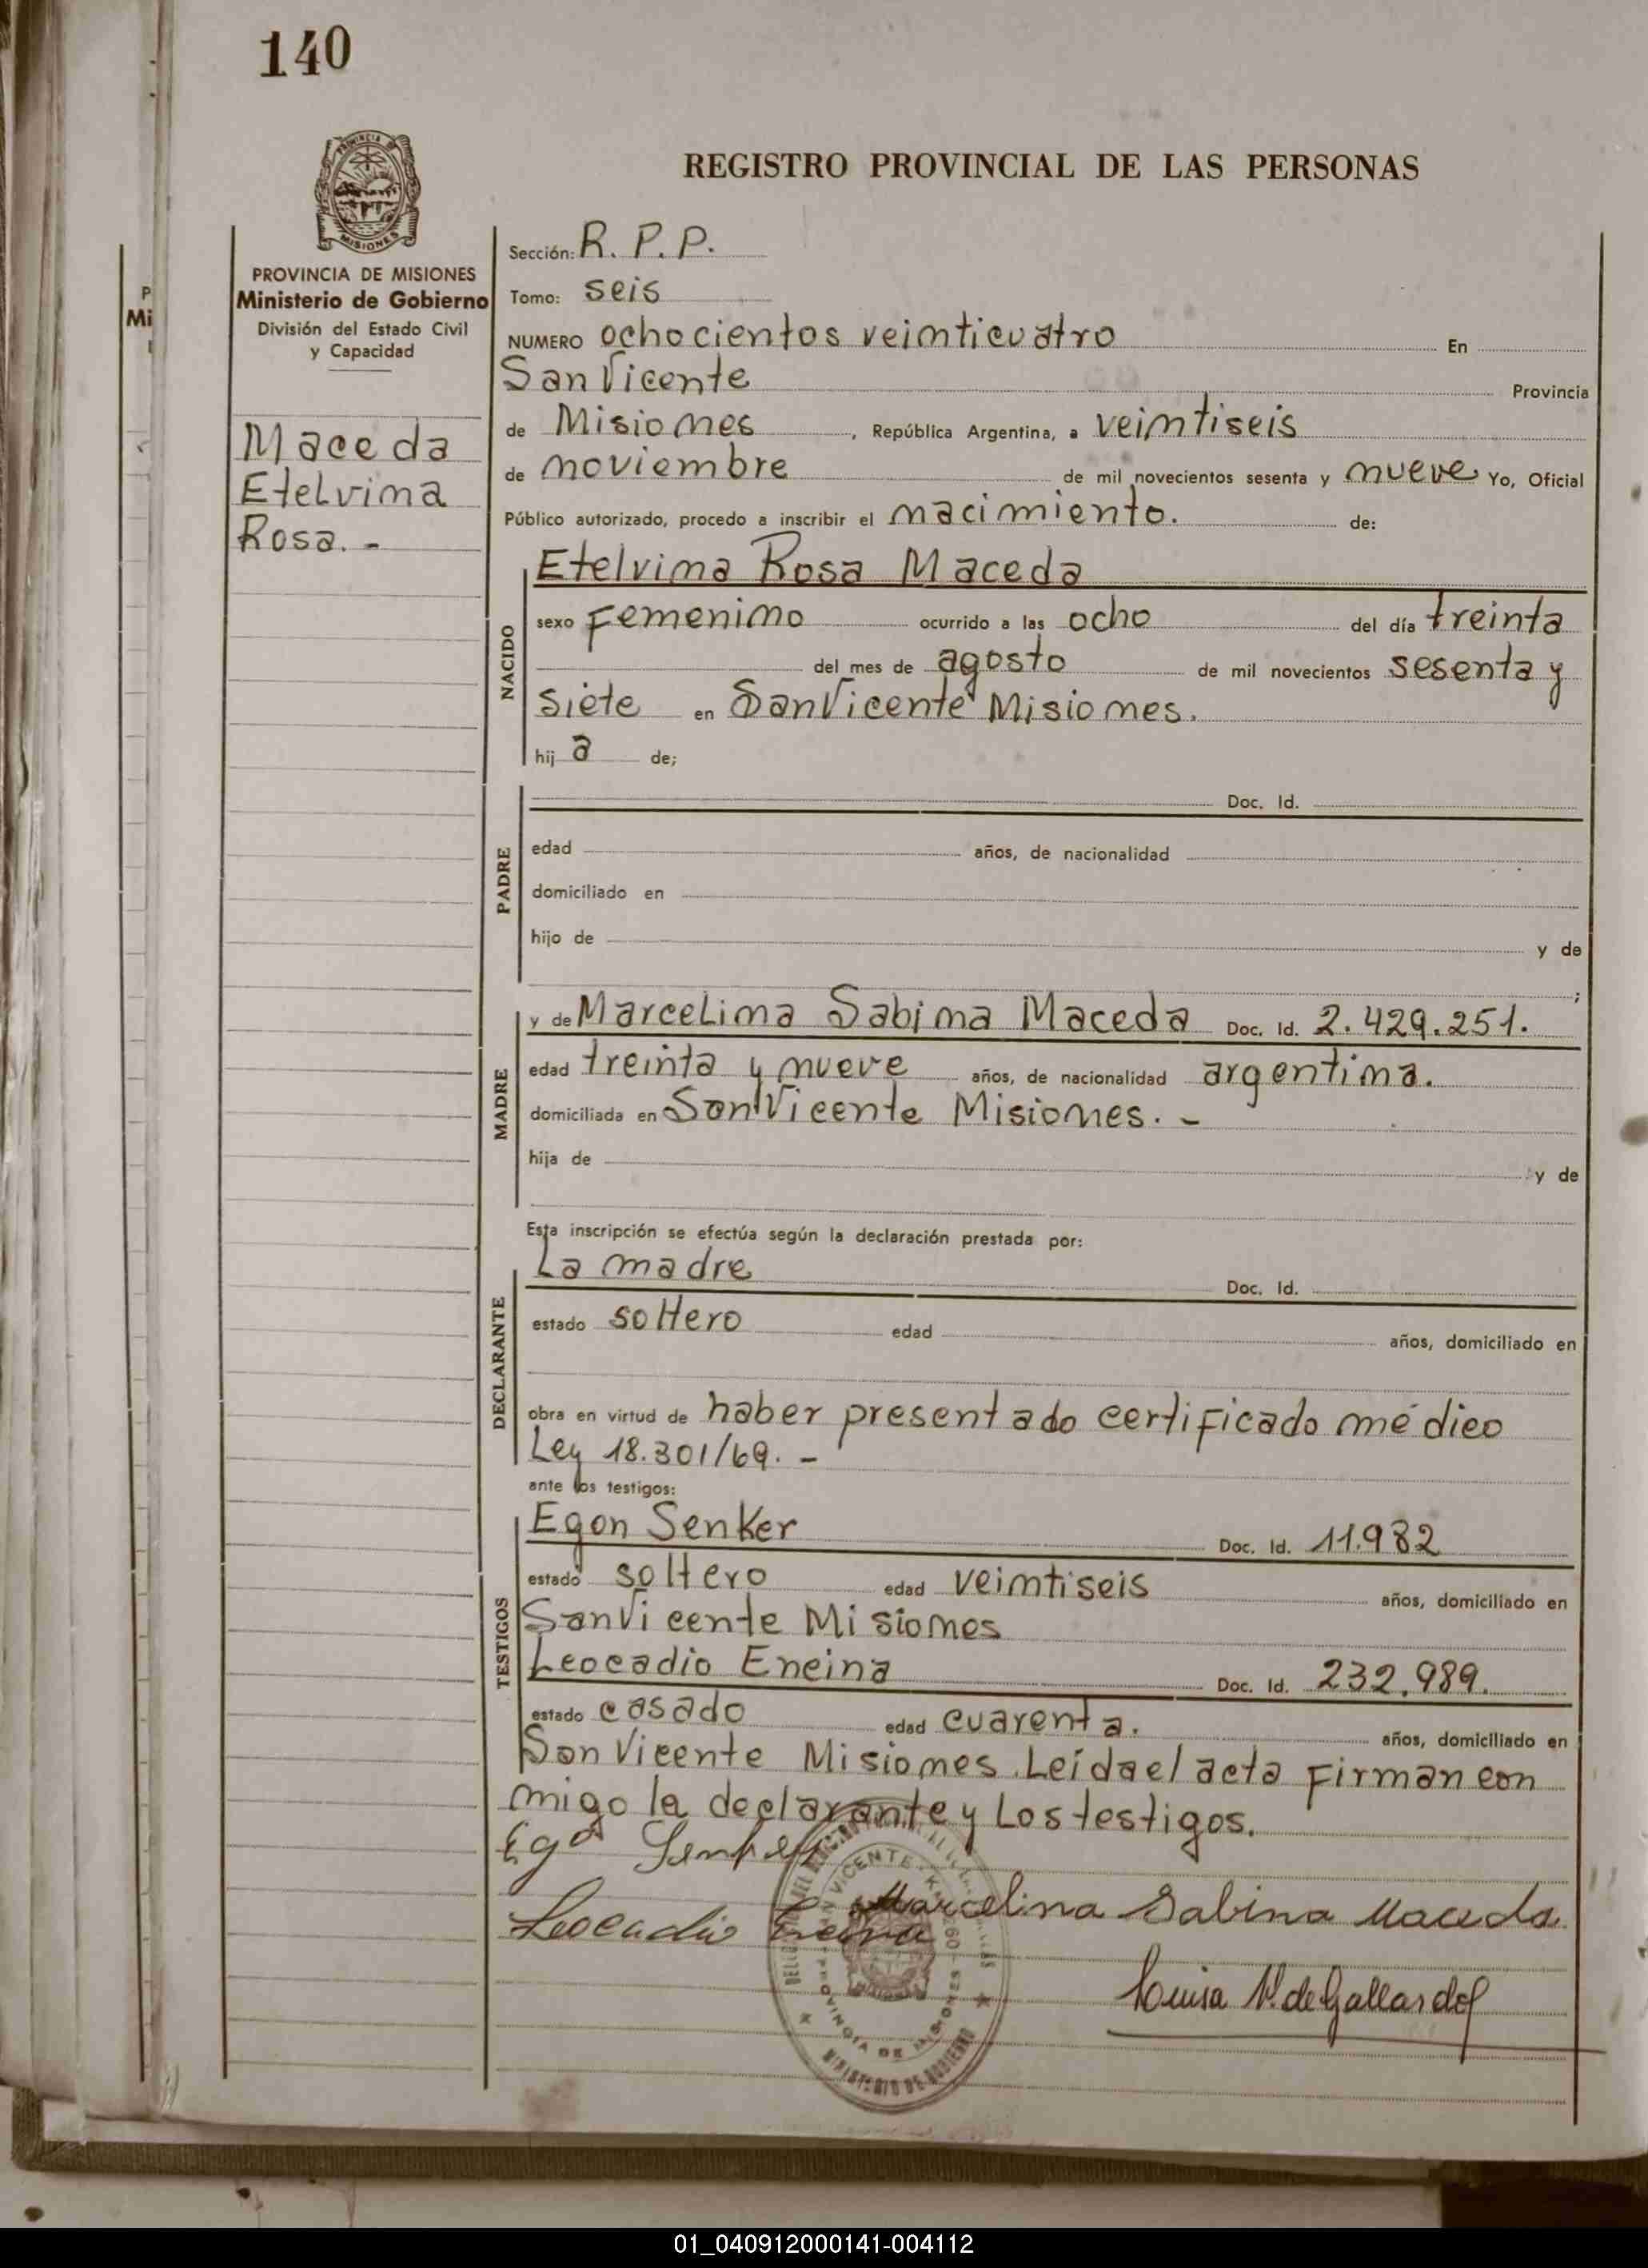 140
PROVINCIA DE
MISIONES
REGISTRO PROVINCIAL DE LAS PERSONAS
PROVINCIA DE MISIONES
Ministerio de Gobierno
División del Estado Civil
y Capacidad
P
Mi
Maceda
Etelvina
Rosa. -
Sección: R. P. P.
Tomo: seis
NUMERO ochocientos veinticuatro En
San Vicente Provincia
de Misiones, República Argentina, a veintiseis
de noviembre de mil novecientos sesenta y nueve Yo, Oficial
Público autorizado, procedo a inscribir el nacimiento. de:
NACIDO
Etelvina Rosa Maceda
sexo Femenino ocurrido a las ocho del día treinta
del mes de agosto de mil novecientos sesenta y
siete en San Vicente Misiones.
hij a de;
PADRE
Doc. Id.
edad años, de nacionalidad
domiciliado en
hijo de y de
;
MADRE
y de Marcelina Sabina Maceda Doc. Id. 2.429.251.
edad treinta y nueve años, de nacionalidad argentina.
domiciliada en San Vicente Misiones. -
hija de y de
Esta inscripción se efectúa según la declaración prestada por:
DECLARANTE
La madre Doc. Id.
estado soltero edad años, domiciliado en
obra en virtud de haber presentado certificado médico
Ley 18.301/69. -
ante los testigos:
TESTIGOS
Egon Senker Doc. Id. 11.982
estado soltero edad veintiseis años, domiciliado en
San Vicente Misiones
Leocadio Eneina Doc. Id. 232.989.
estado casado edad cuarenta. años, domiciliado en
San Vicente Misiones. Leída el acta Firman con
migo la declarante y Los testigos.
Egon Senker
Marcelina Sabina Maceda
Leocadio
Luisa V. de Gallardo
SAN VICENTE - KM. 1260
PROVINCIA DE MISIONES
MINISTERIO DE GOBIERNO
01_040912000141-004112